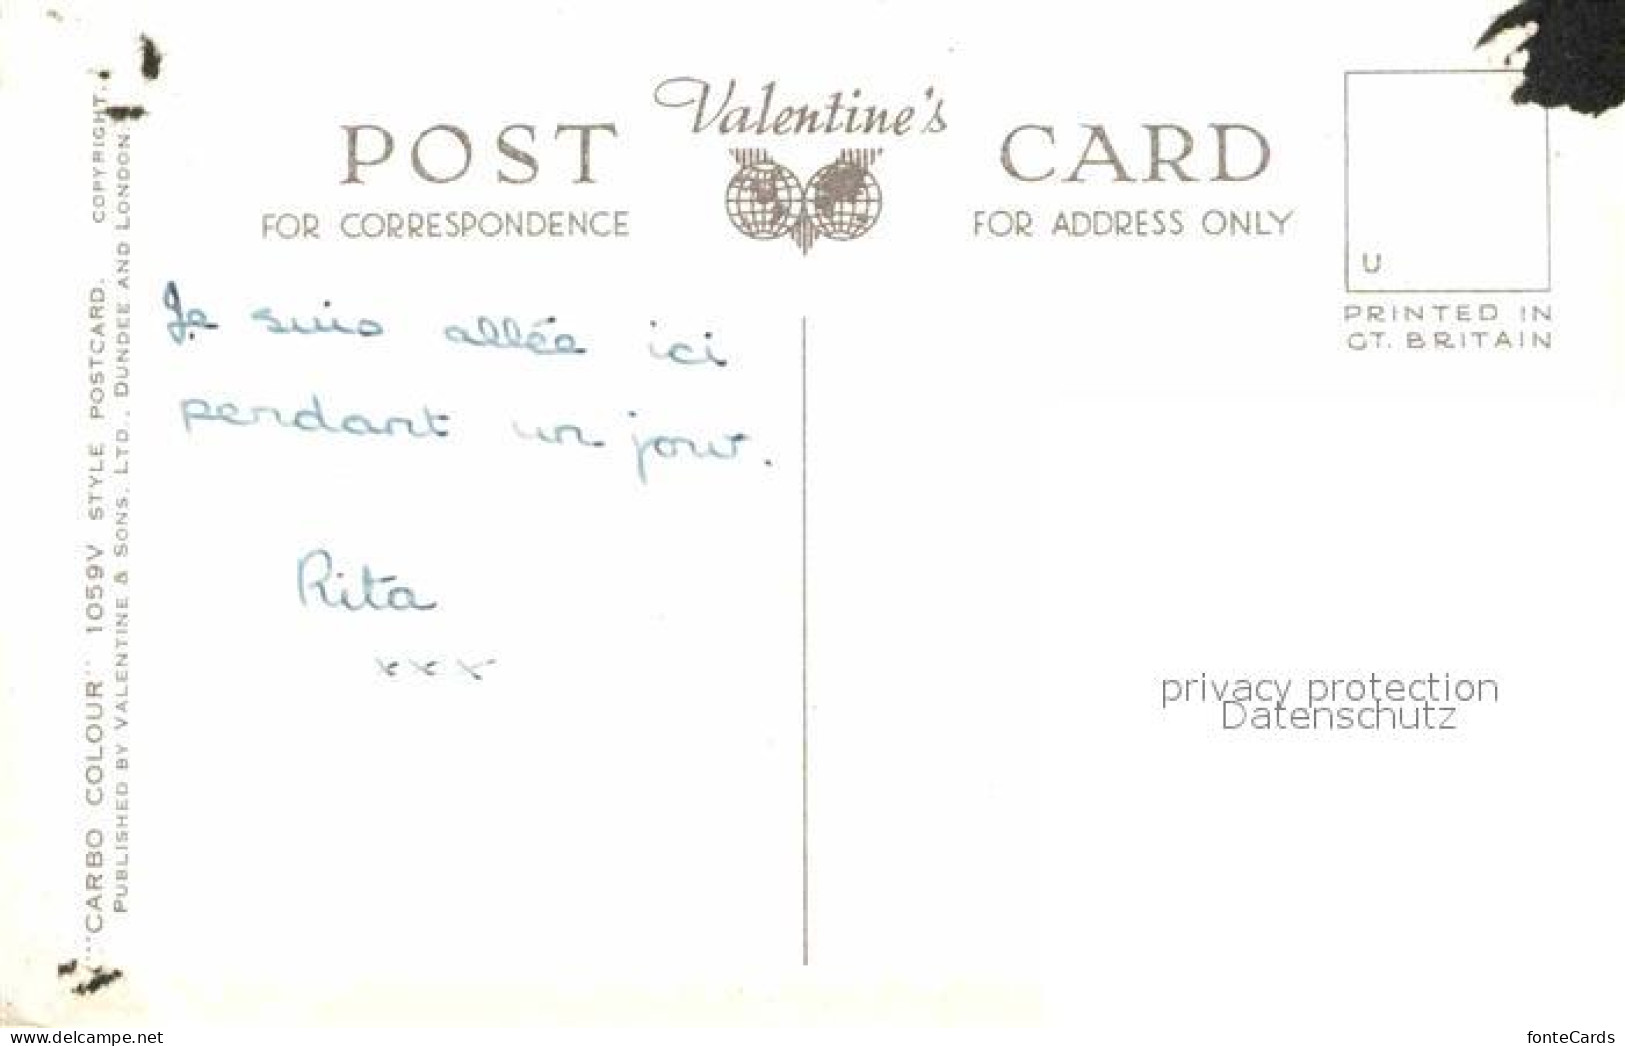 Valentine's
POST CARD
FOR CORRESPONDENCE
FOR ADDRESS ONLY
U
PRINTED IN
GT. BRITAIN
Je suis allée ici
pendant un jour.
Rita
xxx
"CARBO COLOUR" 1059V STYLE POSTCARD. COPYRIGHT.
PUBLISHED BY VALENTINE & SONS, LTD., DUNDEE AND LONDON.
privacy protection
Datenschutz
www.delcampe.net
fonteCards